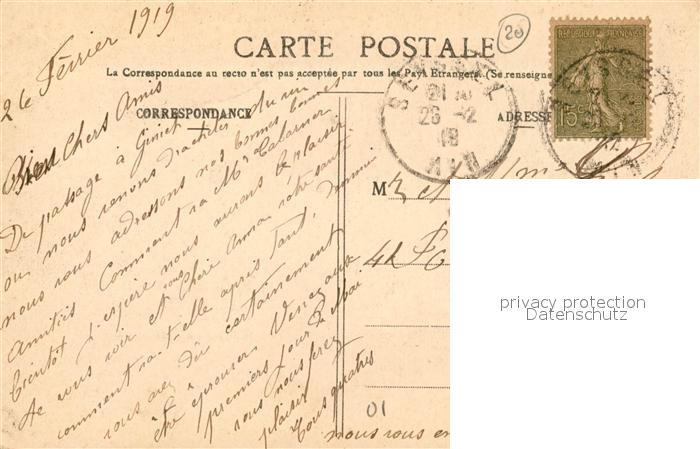 26 Février 1919
20
CARTE POSTALE
La Correspondance au recto n'est pas acceptée par tous les Pays Etrangers. (Se renseigne
CORRESPONDANCE
ADRESSE
REPUBLIQUE FRANÇAISE
15c
26 -2
AIN
Bien Chers Amis
De passage à
ou nous venons d'acheter du vin
nous vous adressons nos bonnes
Amitiés Comment va Mr
bientôt j'espère nous aurons le plaisir
de vous voir et vous Chère Anna votre santé
comment va-t-elle après tant,
vous avez dû certainement
être éprouvés Venez aux
premiers jours de Mai
vous nous ferez
plaisir
Tous quatres
nous vous en
M
41
01
privacy protection
Datenschutz